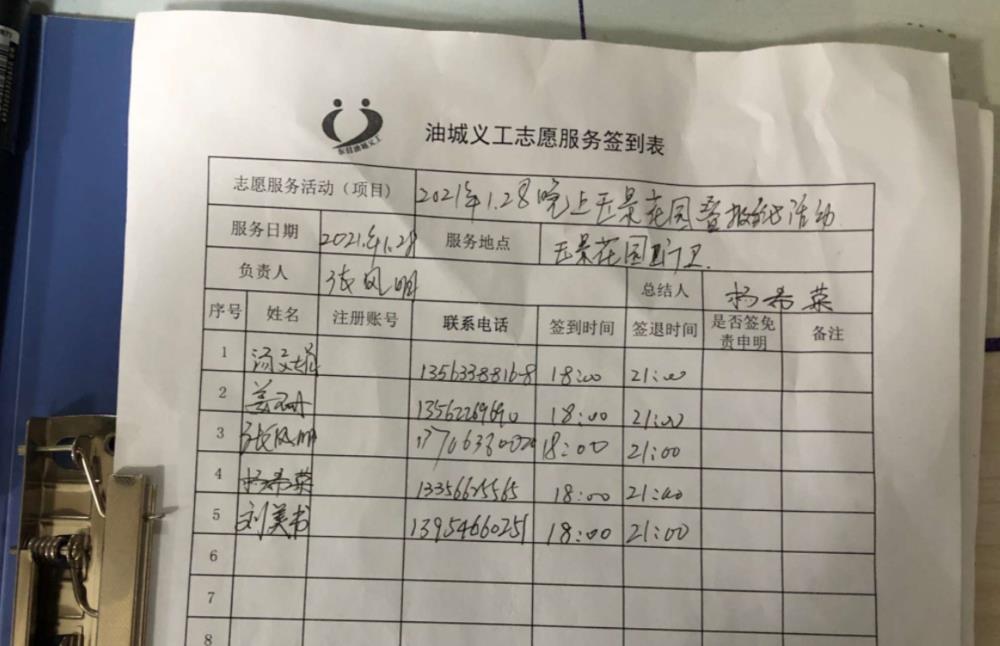 东营油城义工
油城义工志愿服务签到表
志愿服务活动（项目） 2021年1.28晚上玉景花园 活动
服务日期 2021.年1.28 服务地点 玉景花园西门卫.
负责人 张凤明 总结人 杨希荣
序号 姓名 注册账号 联系电话 签到时间 签退时间 是否签免责申明 备注
1 13563388168 18:00 21:00
2 18:00 21:00
3 张凤明 18:00 21:00
4 杨希荣 13356625565 18:00 21:00
5 刘美书 13954660251 18:00 21:00
6
7
8